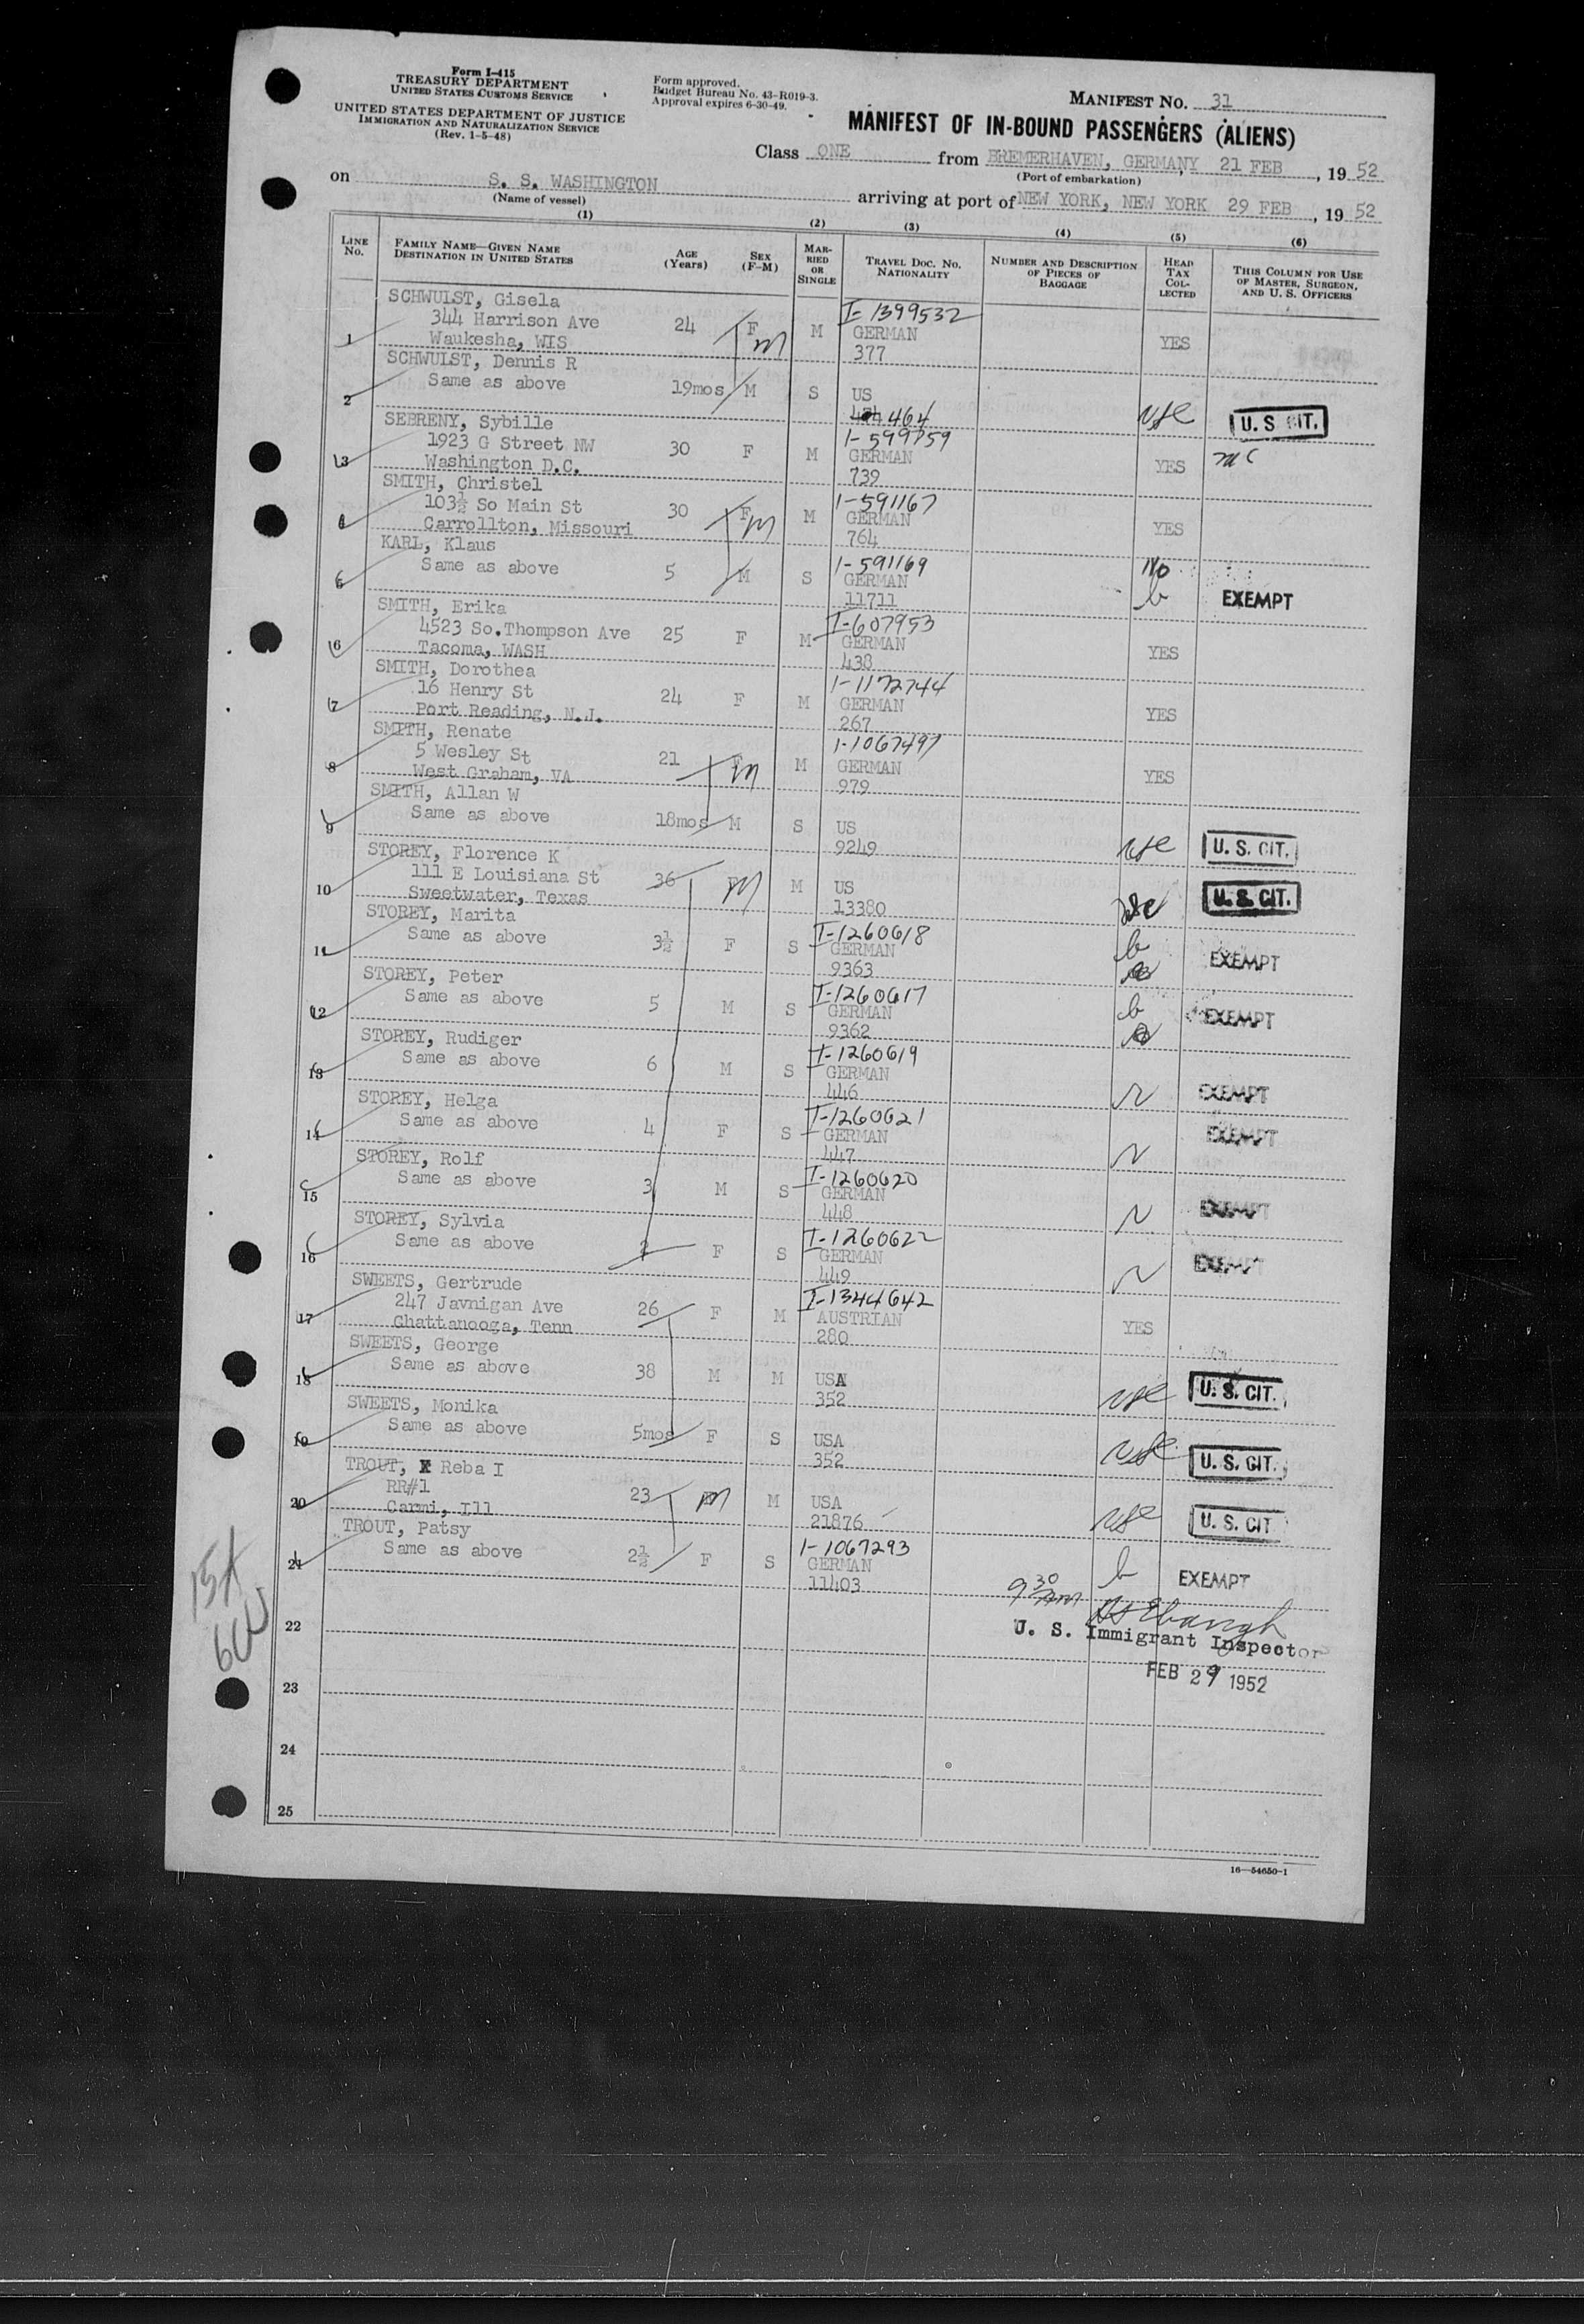 Form I-415
TREASURY DEPARTMENT
UNITED STATES CUSTOMS SERVICE
UNITED STATES DEPARTMENT OF JUSTICE
IMMIGRATION AND NATURALIZATION SERVICE
(Rev. 1-5-48)
Form approved.
Budget Bureau No. 43-R019-3.
Approval expires 6-30-49.
MANIFEST NO. 31
MANIFEST OF IN-BOUND PASSENGERS (ALIENS)
Class ONE from BREMERHAVEN, GERMANY, 21 FEB, 19 52
(Port of embarkation)
on S. S. WASHINGTON arriving at port of NEW YORK, NEW YORK 29 FEB, 19 52
(Name of vessel)
(1) (2) (3) (4) (5) (6)
LINE No. FAMILY NAME—GIVEN NAME DESTINATION IN UNITED STATES AGE (Years) SEX (F-M) MARRIED OR SINGLE TRAVEL DOC. NO. NATIONALITY NUMBER AND DESCRIPTION OF PIECES OF BAGGAGE HEAD TAX COLLECTED THIS COLUMN FOR USE OF MASTER, SURGEON, AND U. S. OFFICERS
SCHWULST, Gisela I-1399532
344 Harrison Ave 24 F M GERMAN YES
1 Waukesha, WIS m 377
SCHWULST, Dennis R
Same as above 19mos M S US
2 464 USC U. S. CIT.
SEBRENY, Sybille I-599759
1923 G Street NW 30 F M GERMAN YES
3 Washington D.C. 739
SMITH, Christel I-591167
103½ So Main St 30 F M GERMAN YES
4 Carrollton, Missouri m 764
KARL, Klaus I-591169 No
Same as above 5 M S GERMAN
5 11711 b EXEMPT
SMITH, Erika I-607953
4523 So. Thompson Ave 25 F M GERMAN YES
6 Tacoma, WASH 438
SMITH, Dorothea I-1172744
16 Henry St 24 F M GERMAN YES
7 Port Reading, N.J. 267
SMITH, Renate I-1067497
5 Wesley St 21 F M GERMAN YES
8 West Graham, VA m 979
SMITH, Allan W
Same as above 18mos M S US
9 9249 USC U. S. CIT.
STOREY, Florence K
111 E Louisiana St 36 F M US
10 Sweetwater, Texas m 13380 USC U. S. CIT.
STOREY, Marita I-1260618
Same as above 3½ F S GERMAN b
11 9363 EXEMPT
STOREY, Peter I-1260617
Same as above 5 M S GERMAN b
12 9362 EXEMPT
STOREY, Rudiger I-1260619
Same as above 6 M S GERMAN
13 446 N EXEMPT
STOREY, Helga I-1260621
Same as above 4 F S GERMAN
14 447 N EXEMPT
STOREY, Rolf I-1260620
Same as above 3 M S GERMAN
15 448 N EXEMPT
STOREY, Sylvia I-1260622
Same as above 2 F S GERMAN
16 449 N EXEMPT
SWEETS, Gertrude I-1344642
247 Javnigan Ave 26 F M AUSTRIAN YES
17 Chattanooga, Tenn 280
SWEETS, George
Same as above 38 M M USA
18 352 USC U. S. CIT.
SWEETS, Monika
Same as above 5mos F S USA
19 352 USC U. S. CIT.
TROUT, Reba I
RR#1 23 M USA
20 Carmi, Ill m 21876 USC U. S. CIT
TROUT, Patsy I-1067293
Same as above 2½ F S GERMAN
21 11403 b EXEMPT
9 30
22 U. S. Immigrant Inspector
FEB 29 1952
23
24
25
16—54650-1